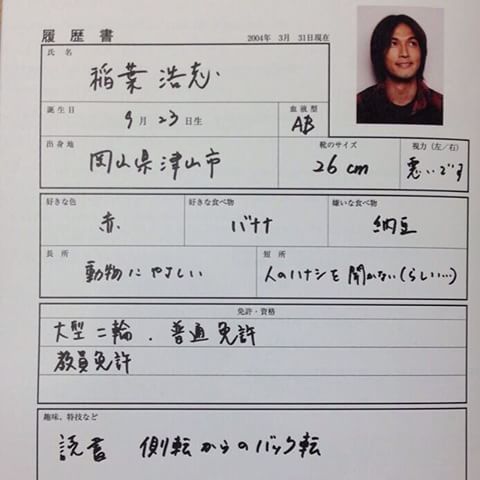 履歴書
2004年 3月 31日現在
氏 名
稲葉 浩志
誕生日
9月 23日生
血液型
AB
出身地
岡山県津山市
靴のサイズ
26 cm
視力（左／右）
悪いです
好きな色
赤
好きな食べ物
バナナ
嫌いな食べ物
納豆
長 所
動物にやさしい
短 所
人のハナシを聞かない(らしい…)
免許・資格
大型二輪．普通免許
教員免許
趣味、特技など
読書 側転からのバック転